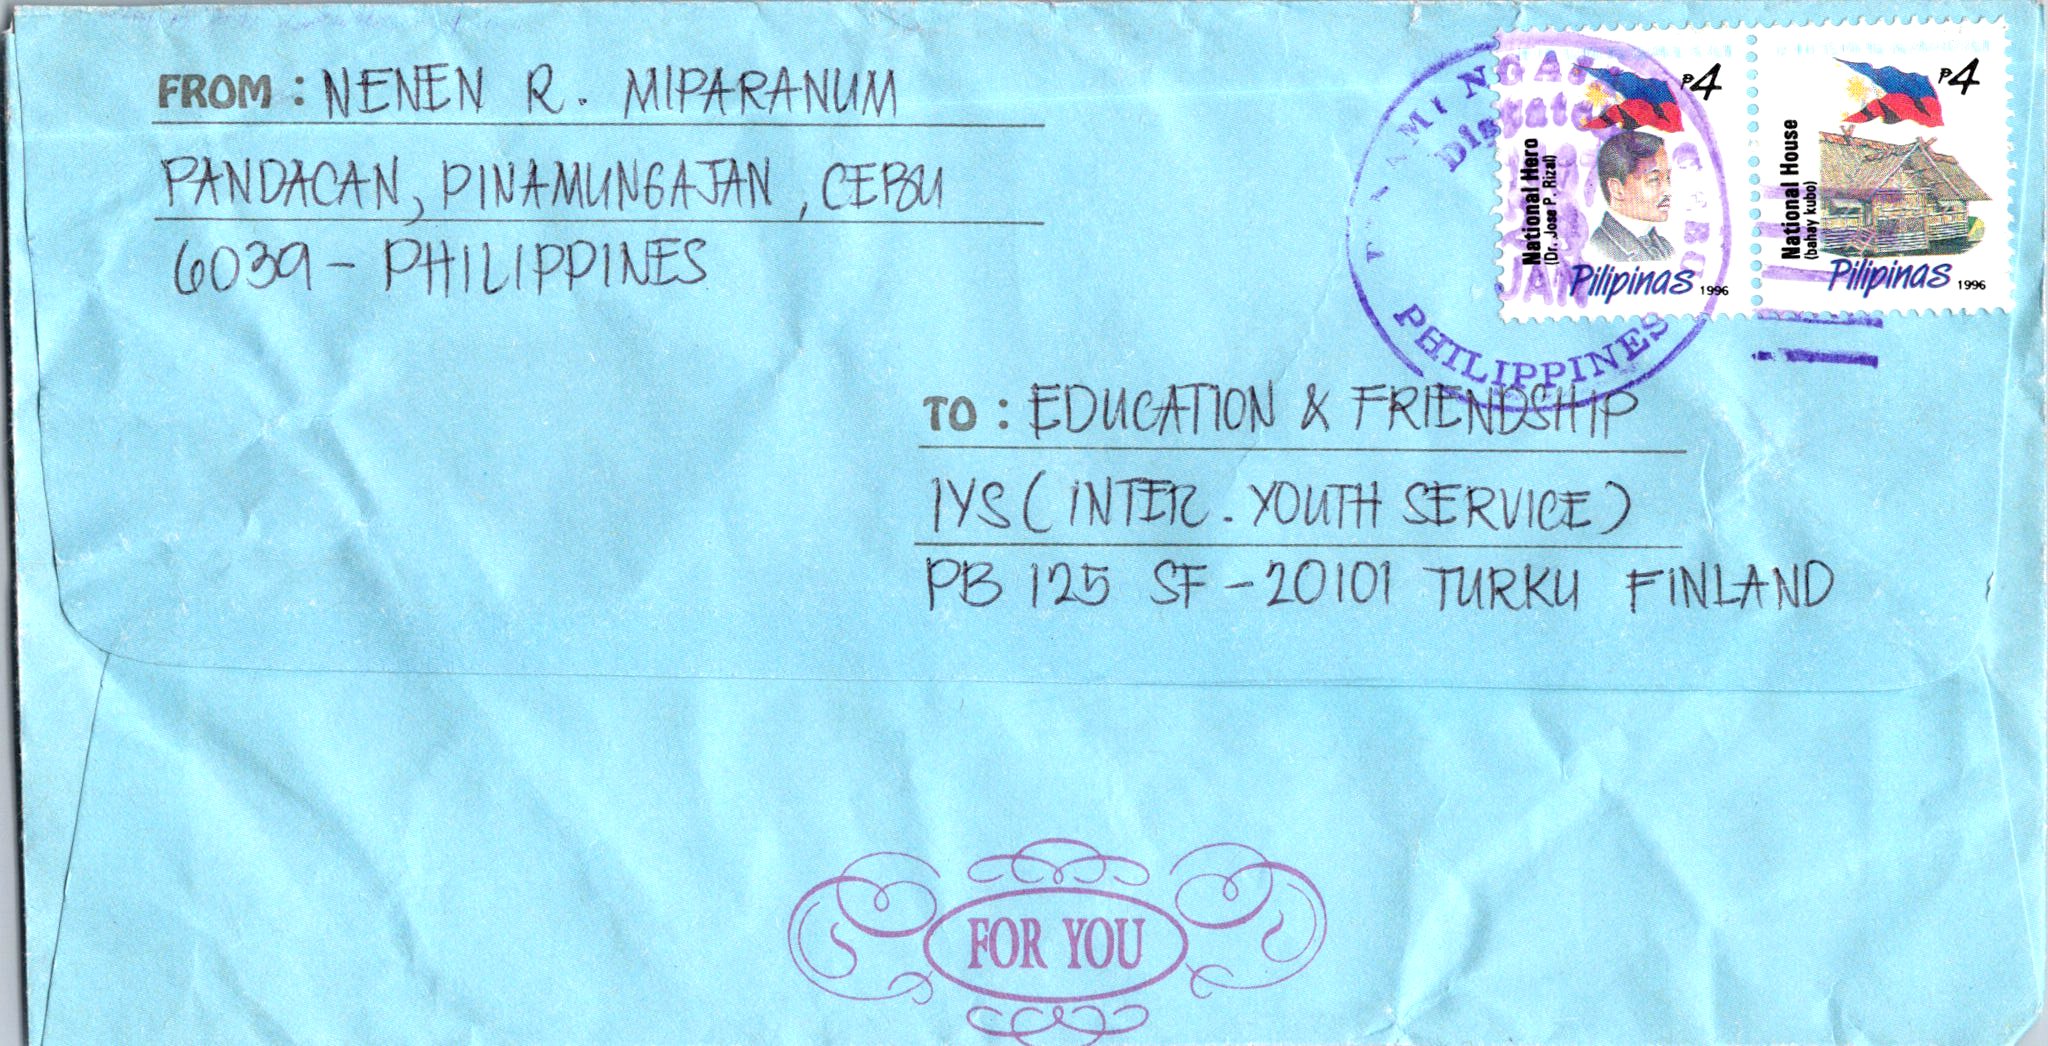 FROM: NENEN R. MIPARANUM
PANDACAN, PINAMUNGAJAN, CEBU
6039 - PHILIPPINES
₱4
National Hero
(Dr. Jose P. Rizal)
Pilipinas 1996
₱4
National House
(bahay kubo)
Pilipinas 1996
CEBU
JAN
PHILIPPINES
TO: EDUCATION & FRIENDSHIP
IYS (INTER. YOUTH SERVICE)
PB 125 SF - 20101 TURKU FINLAND
FOR YOU